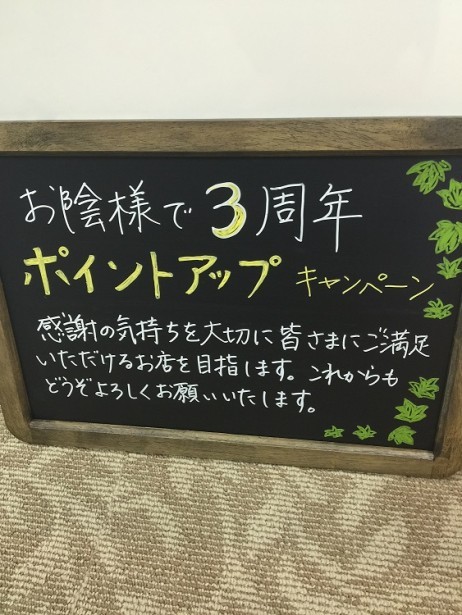 お陰様で3周年
ポイントアップ キャンペーン
感謝の気持ちを大切に皆さまにご満足
いただけるお店を目指します。これからも
どうぞよろしくお願いいたします。